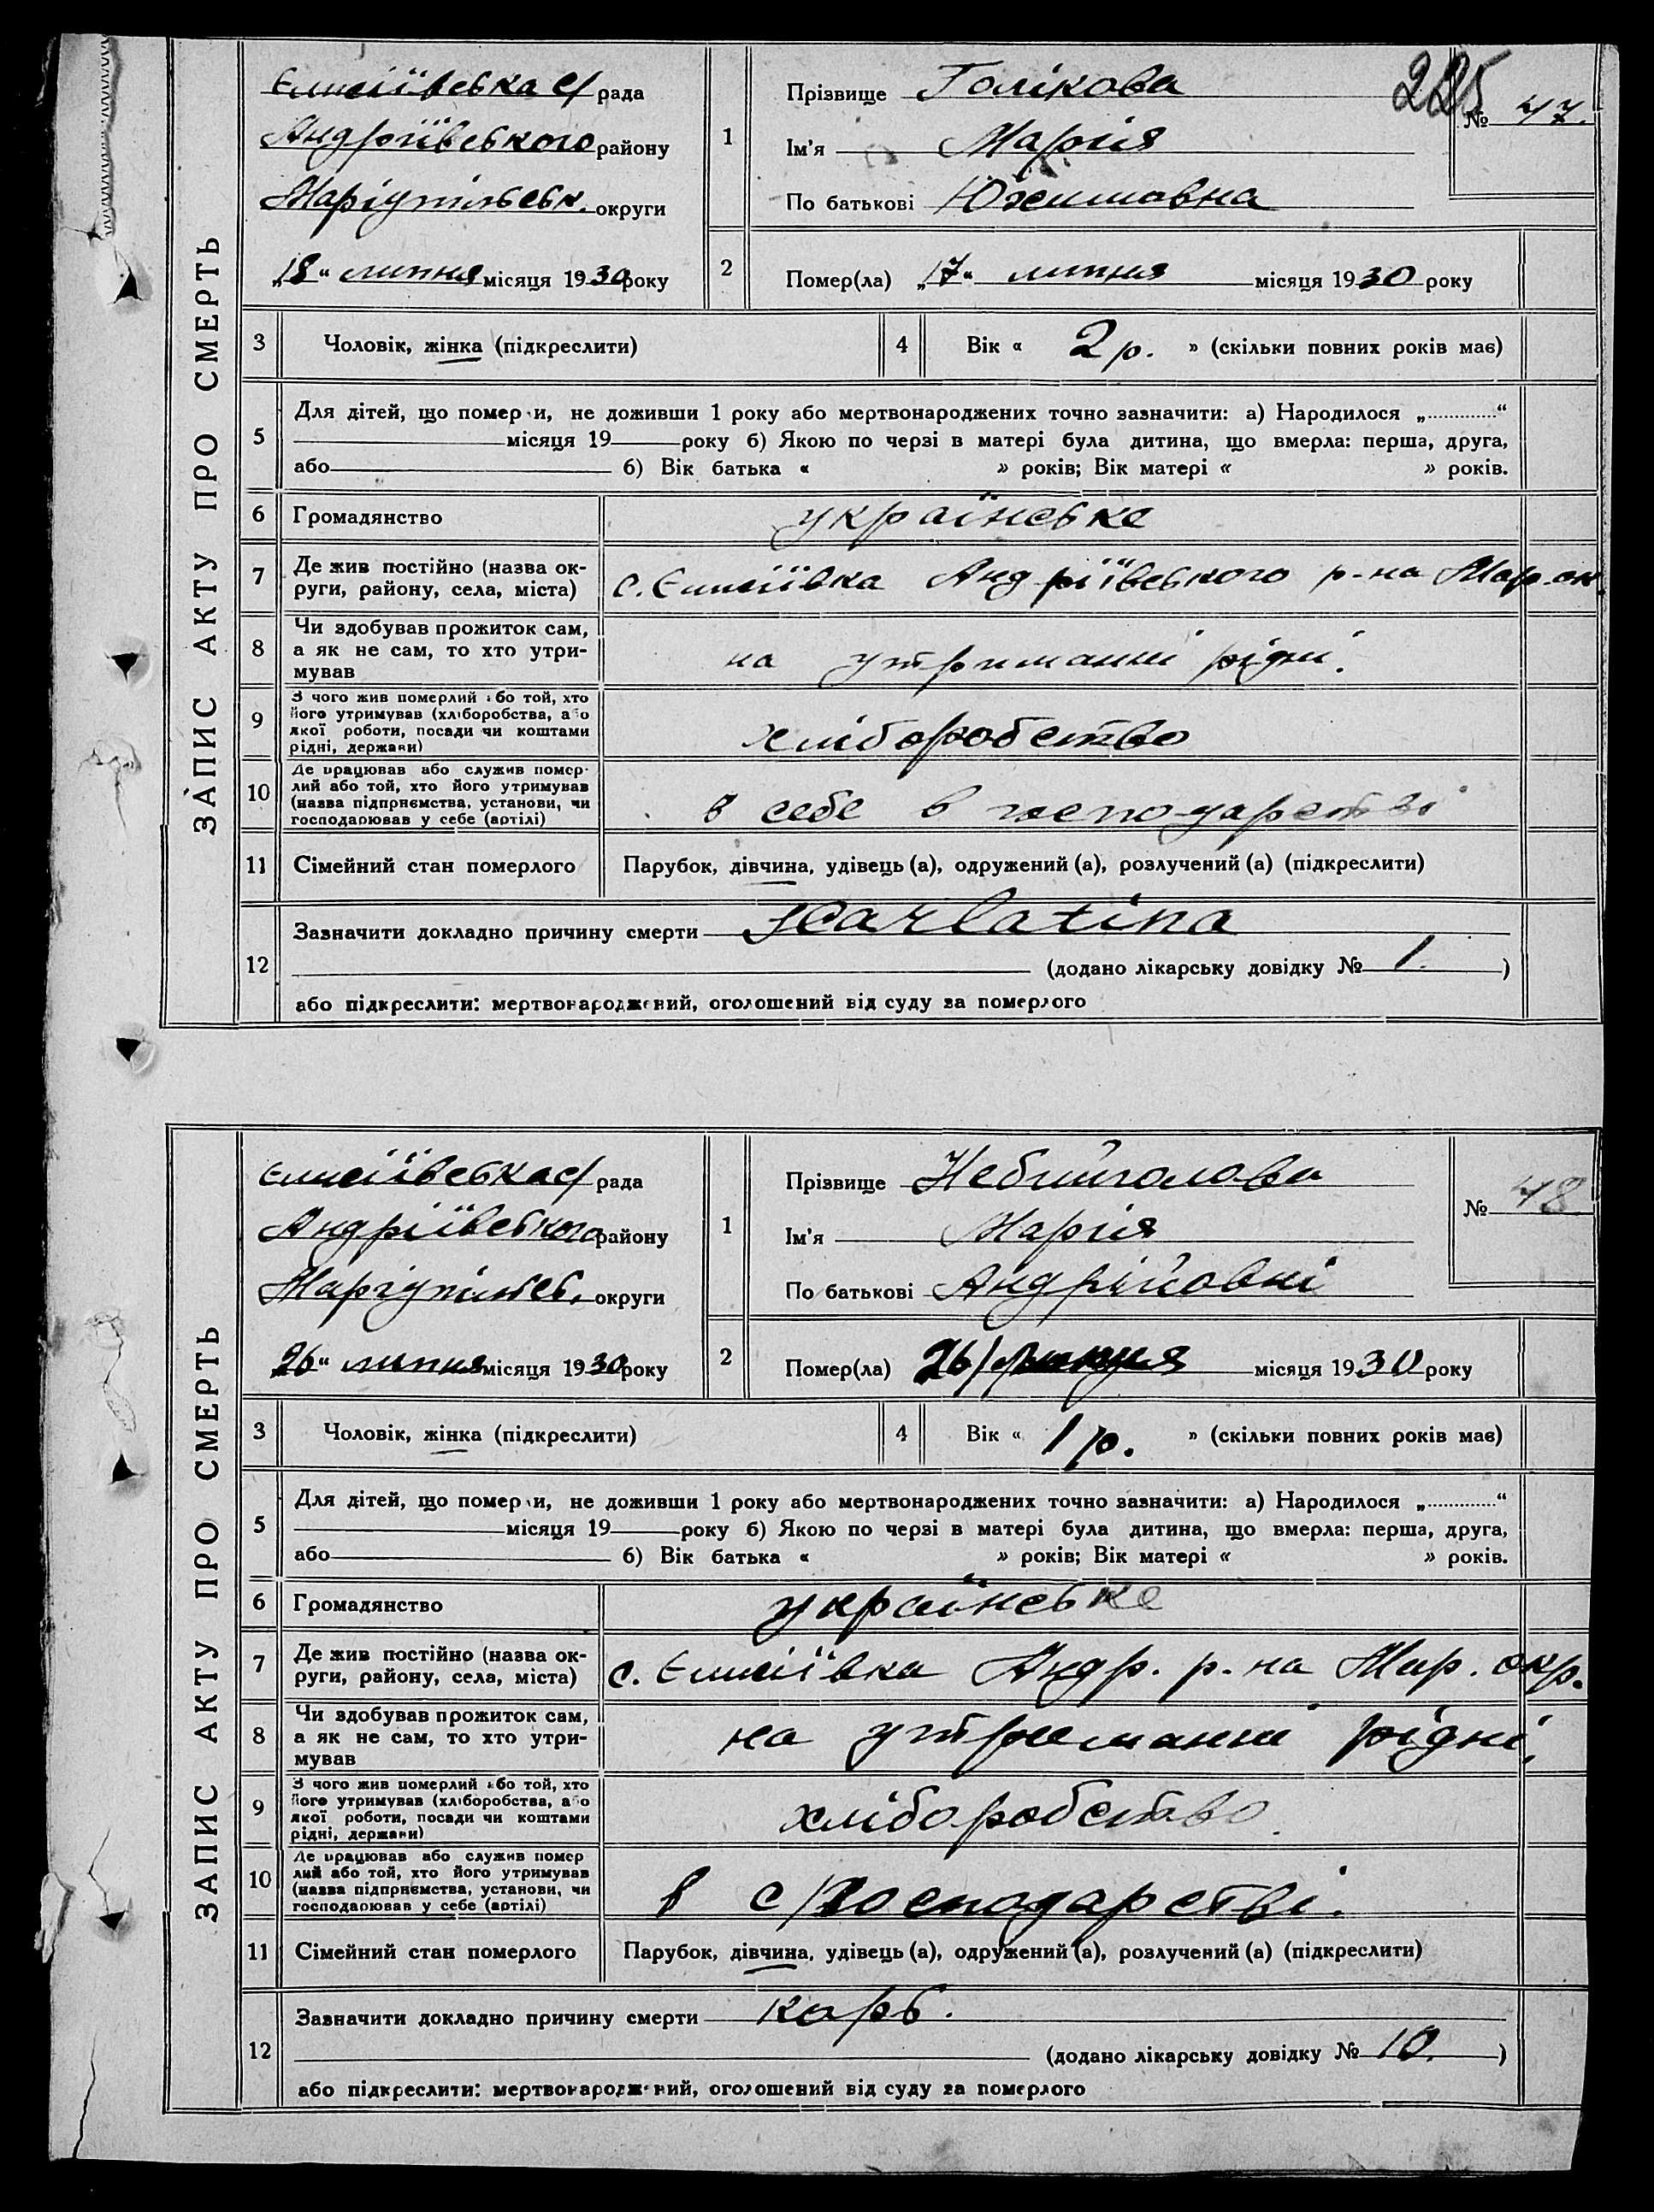 225
ЗАПИС АКТУ ПРО СМЕРТЬ
Єлисіївська с/рада
Андріївського району
Маріупільськ. округи
„18“ липня місяця 1930 року
1
Прізвище Голікова
Ім'я Марія
По батькові
№ 47.
2
Помер(ла) „17“ липня місяця 1930 року
3
Чоловік, жінка (підкреслити)
4
Вік « 2 р. » (скільки повних років має)
5
Для дітей, що померли, не доживши 1 року або мертвонароджених точно зазначити: а) Народилося „............“
місяця 19 року б) Якою по черзі в матері була дитина, що вмерла: перша, друга,
або б) Вік батька « » років; Вік матері « » років.
6
Громадянство українське
7
Де жив постійно (назва ок-
руги, району, села, міста)
с. Єлисіївка Андріївського р-на Мар. ок.
8
Чи здобував прожиток сам,
а як не сам, то хто утри-
мував
на утриманні рідні.
9
З чого жив померлий або той, хто
його утримував (хліборобства, або
якої роботи, посади чи коштами
рідні, держави)
хліборобство
10
Де працював або служив помер-
лий або той, хто його утримував
(назва підприємства, установи, чи
господарював у себе (артілі)
в себе в господарстві
11
Сімейний стан померлого
Парубок, дівчина, удівець (а), одружений (а), розлучений (а) (підкреслити)
12
Зазначити докладно причину смерти Scarlatina
(додано лікарську довідку № 1. )
або підкреслити: мертвонароджений, оголошений від суду за померлого
ЗАПИС АКТУ ПРО СМЕРТЬ
Єлисіївська с/рада
Андріївського району
Маріупільськ. округи
„26“ липня місяця 1930 року
1
Прізвище Небийголова
Ім'я Марія
По батькові Андрійовні
№ 48
2
Помер(ла) 26/липня місяця 1930 року
3
Чоловік, жінка (підкреслити)
4
Вік « 1 р. » (скільки повних років має)
5
Для дітей, що померли, не доживши 1 року або мертвонароджених точно зазначити: а) Народилося „............“
місяця 19 року б) Якою по черзі в матері була дитина, що вмерла: перша, друга,
або б) Вік батька « » років; Вік матері « » років.
6
Громадянство українське
7
Де жив постійно (назва ок-
руги, району, села, міста)
с. Єлисіївка Андр. р-на Мар. окр.
8
Чи здобував прожиток сам,
а як не сам, то хто утри-
мував
на утриманні рідні.
9
З чого жив померлий або той, хто
його утримував (хліборобства, або
якої роботи, посади чи коштами
рідні, держави)
хліборобство.
10
Де працював або служив помер
лий або той, хто його утримував
(назва підприємства, установи, чи
господарював у себе (артілі)
в с/господарстві.
11
Сімейний стан померлого
Парубок, дівчина, удівець (а), одружений (а), розлучений (а) (підкреслити)
12
Зазначити докладно причину смерти корб.
(додано лікарську довідку № 10. )
або підкреслити: мертвонароджений, оголошений від суду за померлого